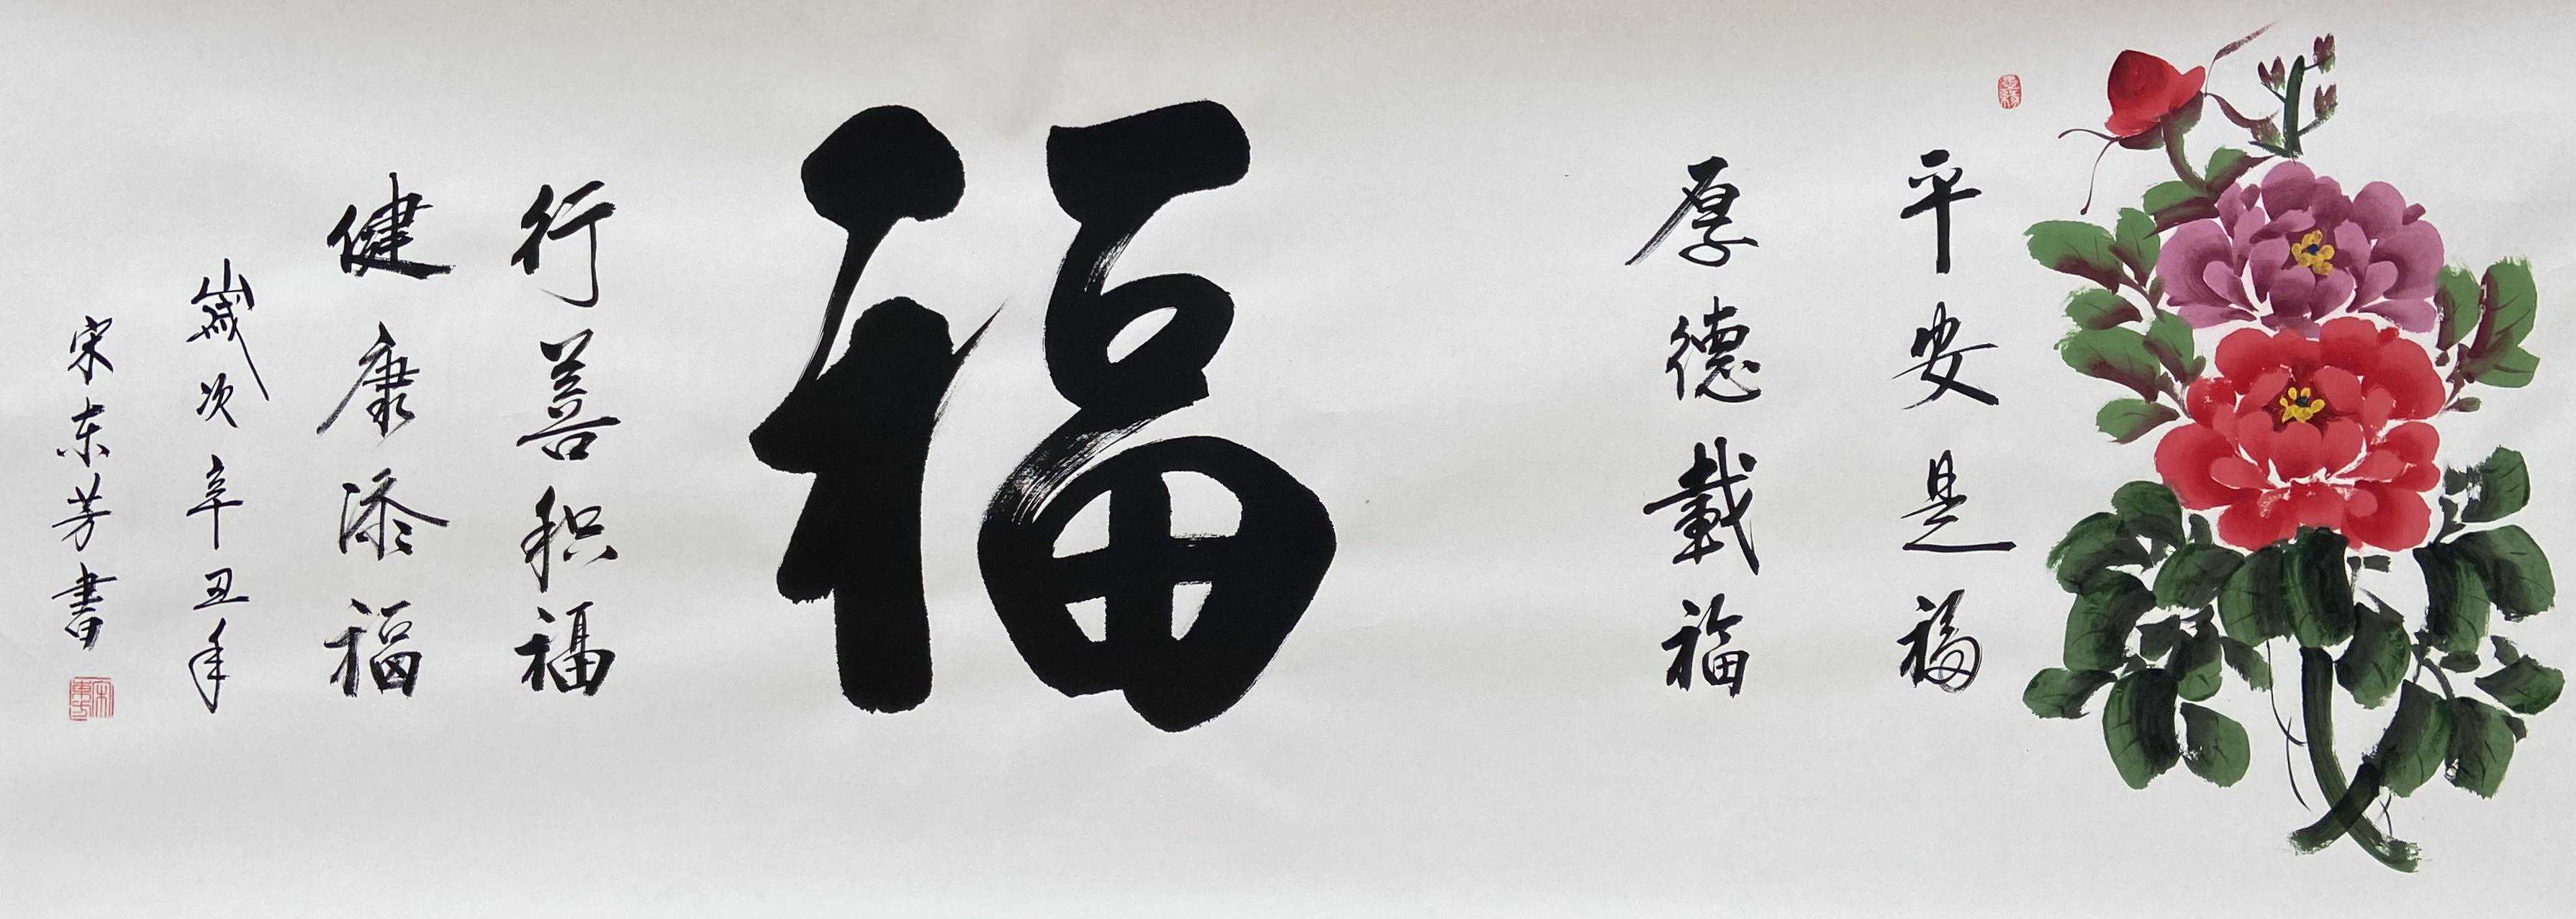 平安是福
厚德載福
福
行善积福
健康添福
歲次辛丑年
宋东芳書